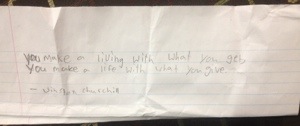 you make a living with what you get
you make a life with what you give -
- Winston churchill